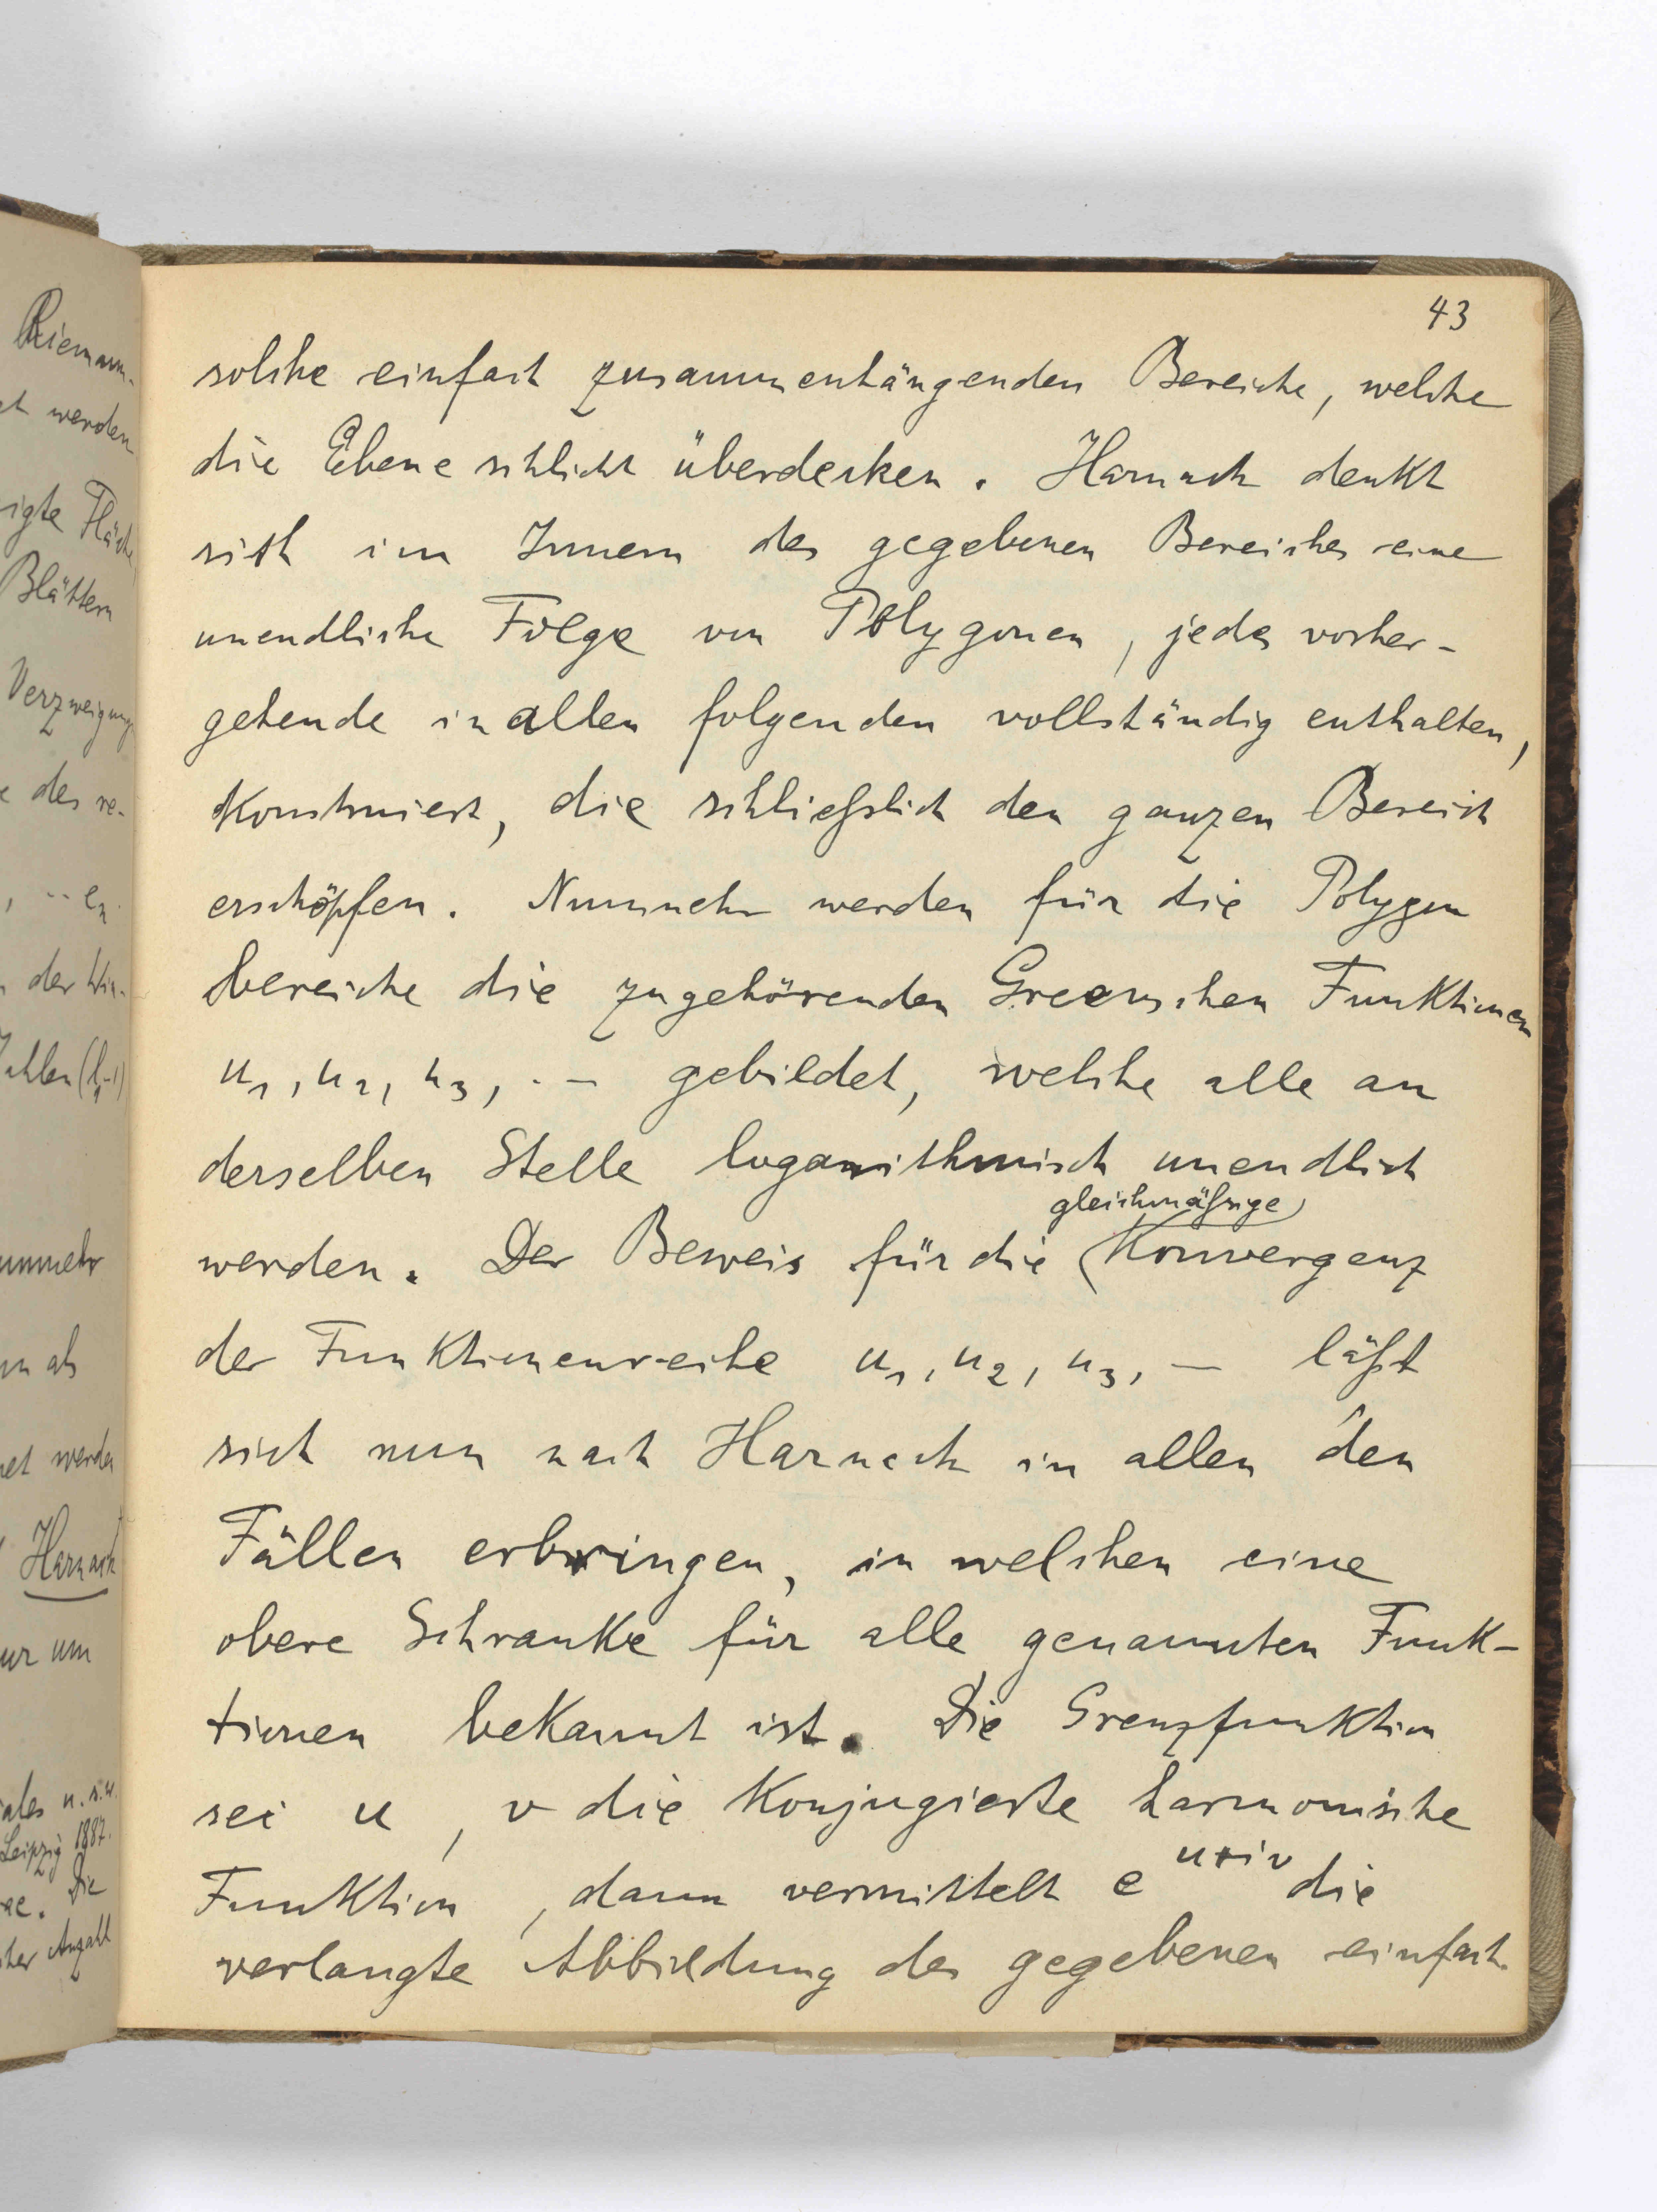 Riemann-
et werden
igte Fläche,
Blättern
Verzweigungs
e des re-
, -- en
der Win-
Zahlen (l1-1)
unmehr
nn als
et werden
Harnack
ur um
ales u.s.w.
Leipzig 1887.
ee. Die
cher Anzahl
43
solche einfach zusammenhängenden Bereiche, welche
die Ebene schlicht überdecken. Harnack denkt
sich im Innern des gegebenen Bereiches eine
unendliche Folge von Polygonen, jedes vorher-
gehende in allen folgenden vollständig enthalten,
konstruiert, die schließlich den ganzen Bereich
erschöpfen. Nunmehr werden für die Polygon
bereiche die zugehörenden Greenschen Funktionen
u1, u2, u3, .– gebildet, welche alle an
derselben Stelle logarithmisch unendlich
gleichmäßige
werden. Der Beweis für die Konvergenz
der Funktionenreihe u1, u2, u3, – läßt
sich nun nach Harnack in allen den
Fällen erbringen, in welchen eine
obere Schranke für alle genannten Funk-
tionen bekannt ist. Die Grenzfunktion
sei u, v die konjugierte harmonische
Funktion, dann vermittelt e^{u+iv} die
verlangte Abbildung des gegebenen einfach